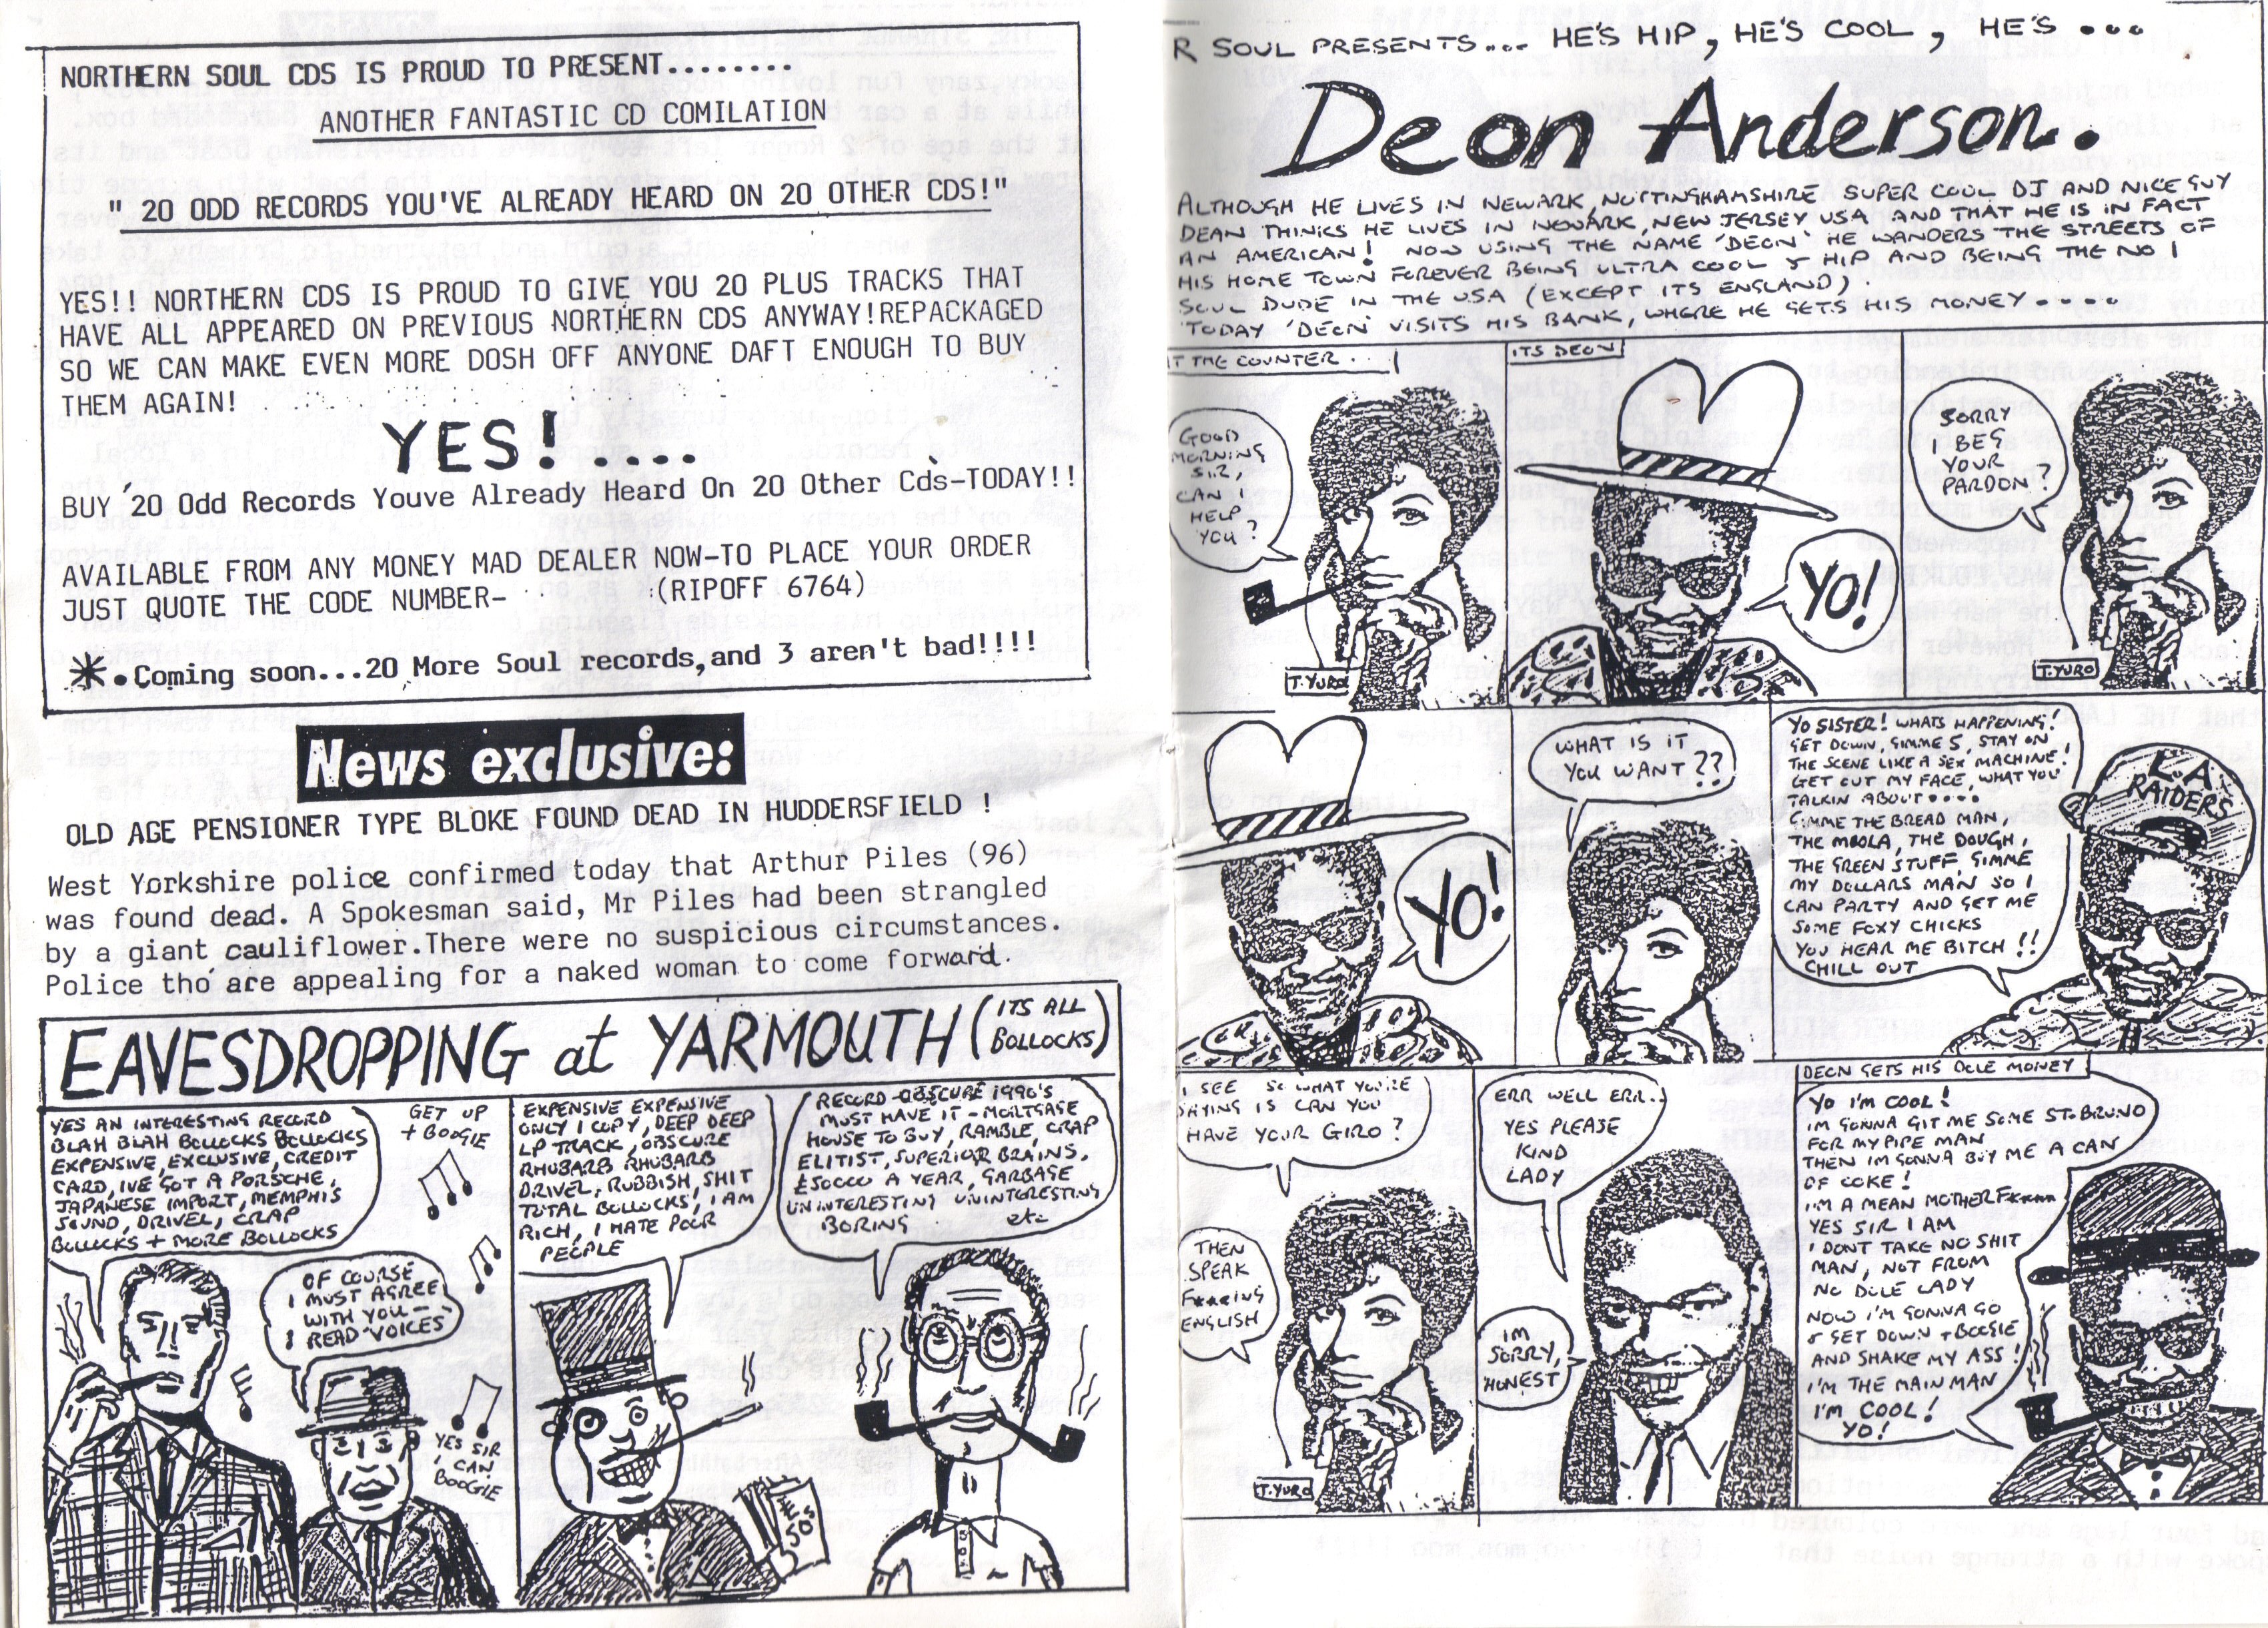 NORTHERN SOUL CDS IS PROUD TO PRESENT........
ANOTHER FANTASTIC CD COMILATION
" 20 ODD RECORDS YOU'VE ALREADY HEARD ON 20 OTHER CDS!"
YES!! NORTHERN CDS IS PROUD TO GIVE YOU 20 PLUS TRACKS THAT
HAVE ALL APPEARED ON PREVIOUS NORTHERN CDS ANYWAY!REPACKAGED
SO WE CAN MAKE EVEN MORE DOSH OFF ANYONE DAFT ENOUGH TO BUY
THEM AGAIN!
YES!....
BUY '20 Odd Records Youve Already Heard On 20 Other Cds-TODAY!!
AVAILABLE FROM ANY MONEY MAD DEALER NOW-TO PLACE YOUR ORDER
JUST QUOTE THE CODE NUMBER- (RIPOFF 6764)
*.Coming soon...20 More Soul records,and 3 aren't bad!!!!
News exclusive:
OLD AGE PENSIONER TYPE BLOKE FOUND DEAD IN HUDDERSFIELD !
West Yorkshire police confirmed today that Arthur Piles (96)
was found dead. A Spokesman said, Mr Piles had been strangled
by a giant cauliflower.There were no suspicious circumstances.
Police tho' are appealing for a naked woman to come forward.
EAVESDROPPING at YARMOUTH (ITS ALL
BOLLOCKS)
YES AN INTERESTING RECORD
BLAH BLAH BOLLOCKS BOLLOCKS
EXPENSIVE, EXCLUSIVE, CREDIT
CARD, IVE GOT A PORSCHE,
JAPANESE IMPORT, MEMPHIS
SOUND, DRIVEL, CRAP
BOLLOCKS + MORE BOLLOCKS
GET UP
+ BOOGIE
OF COURSE
I MUST AGREE
WITH YOU -
I READ 'VOICES'
YES SIR
I CAN
BOOGIE
EXPENSIVE EXPENSIVE
ONLY 1 COPY, DEEP DEEP
LP TRACK, OBSCURE
RHUBARB RHUBARB
DRIVEL, RUBBISH, SHIT
TOTAL BOLLOCKS, I AM
RICH, I HATE POOR
PEOPLE
RECORD-OBSCURE 1990'S
MUST HAVE IT - MORTGAGE
HOUSE TO BUY, RAMBLE, CRAP
ELITIST, SUPERIOR BRAINS,
£50000 A YEAR, GARBAGE
UNINTERESTING UNINTERESTING
BORING etc
THE
50's
R SOUL PRESENTS... HE'S HIP, HE'S COOL, HE'S ...
Deon Anderson..
ALTHOUGH HE LIVES IN NEWARK, NOTTINGHAMSHIRE SUPER COOL DJ AND NICE GUY
DEAN THINKS HE LIVES IN NEWARK, NEW JERSEY USA AND THAT HE IS IN FACT
AN AMERICAN! NOW USING THE NAME 'DEON' HE WANDERS THE STREETS OF
HIS HOME TOWN FOREVER BEING ULTRA COOL & HIP AND BEING THE NO 1
SOUL DUDE IN THE USA (EXCEPT ITS ENGLAND).
TODAY 'DEON' VISITS HIS BANK, WHERE HE GETS HIS MONEY....
AT THE COUNTER...
GOOD
MORNING
SIR,
CAN I
HELP
YOU?
T.YURO
ITS DEON
YO!
SORRY
I BEG
YOUR
PARDON?
T.YURO
YO!
WHAT IS IT
YOU WANT??
YO SISTER! WHATS HAPPENING!
GET DOWN, GIMME 5, STAY ON
THE SCENE LIKE A SEX MACHINE!
GET OUT MY FACE, WHAT YOU
TALKIN ABOUT....
GIMME THE BREAD MAN,
THE MOOLA, THE DOUGH,
THE GREEN STUFF, GIMME
MY DOLLARS MAN SO I
CAN PARTY AND GET ME
SOME FOXY CHICKS
YOU HEAR ME BITCH !!
CHILL OUT
L.A.
RAIDERS
I SEE SO WHAT YOU'RE
SAYING IS CAN YOU
HAVE YOUR GIRO?
THEN
SPEAK
F***ING
ENGLISH
T.YURO
ERR WELL ERR..
YES PLEASE
KIND
LADY
IM
SORRY,
HONEST
DEON GETS HIS DOLE MONEY
YO I'M COOL!
IM GONNA GIT ME SOME ST. BRUNO
FOR MY PIPE MAN
THEN IM GONNA BUY ME A CAN
OF COKE!
I'M A MEAN MOTHERF****
YES SIR I AM
I DONT TAKE NO SHIT
MAN, NOT FROM
NO DOLE LADY
NOW I'M GONNA GO
& GET DOWN + BOOGIE
AND SHAKE MY ASS!
I'M THE MAIN MAN
I'M COOL!
YO!